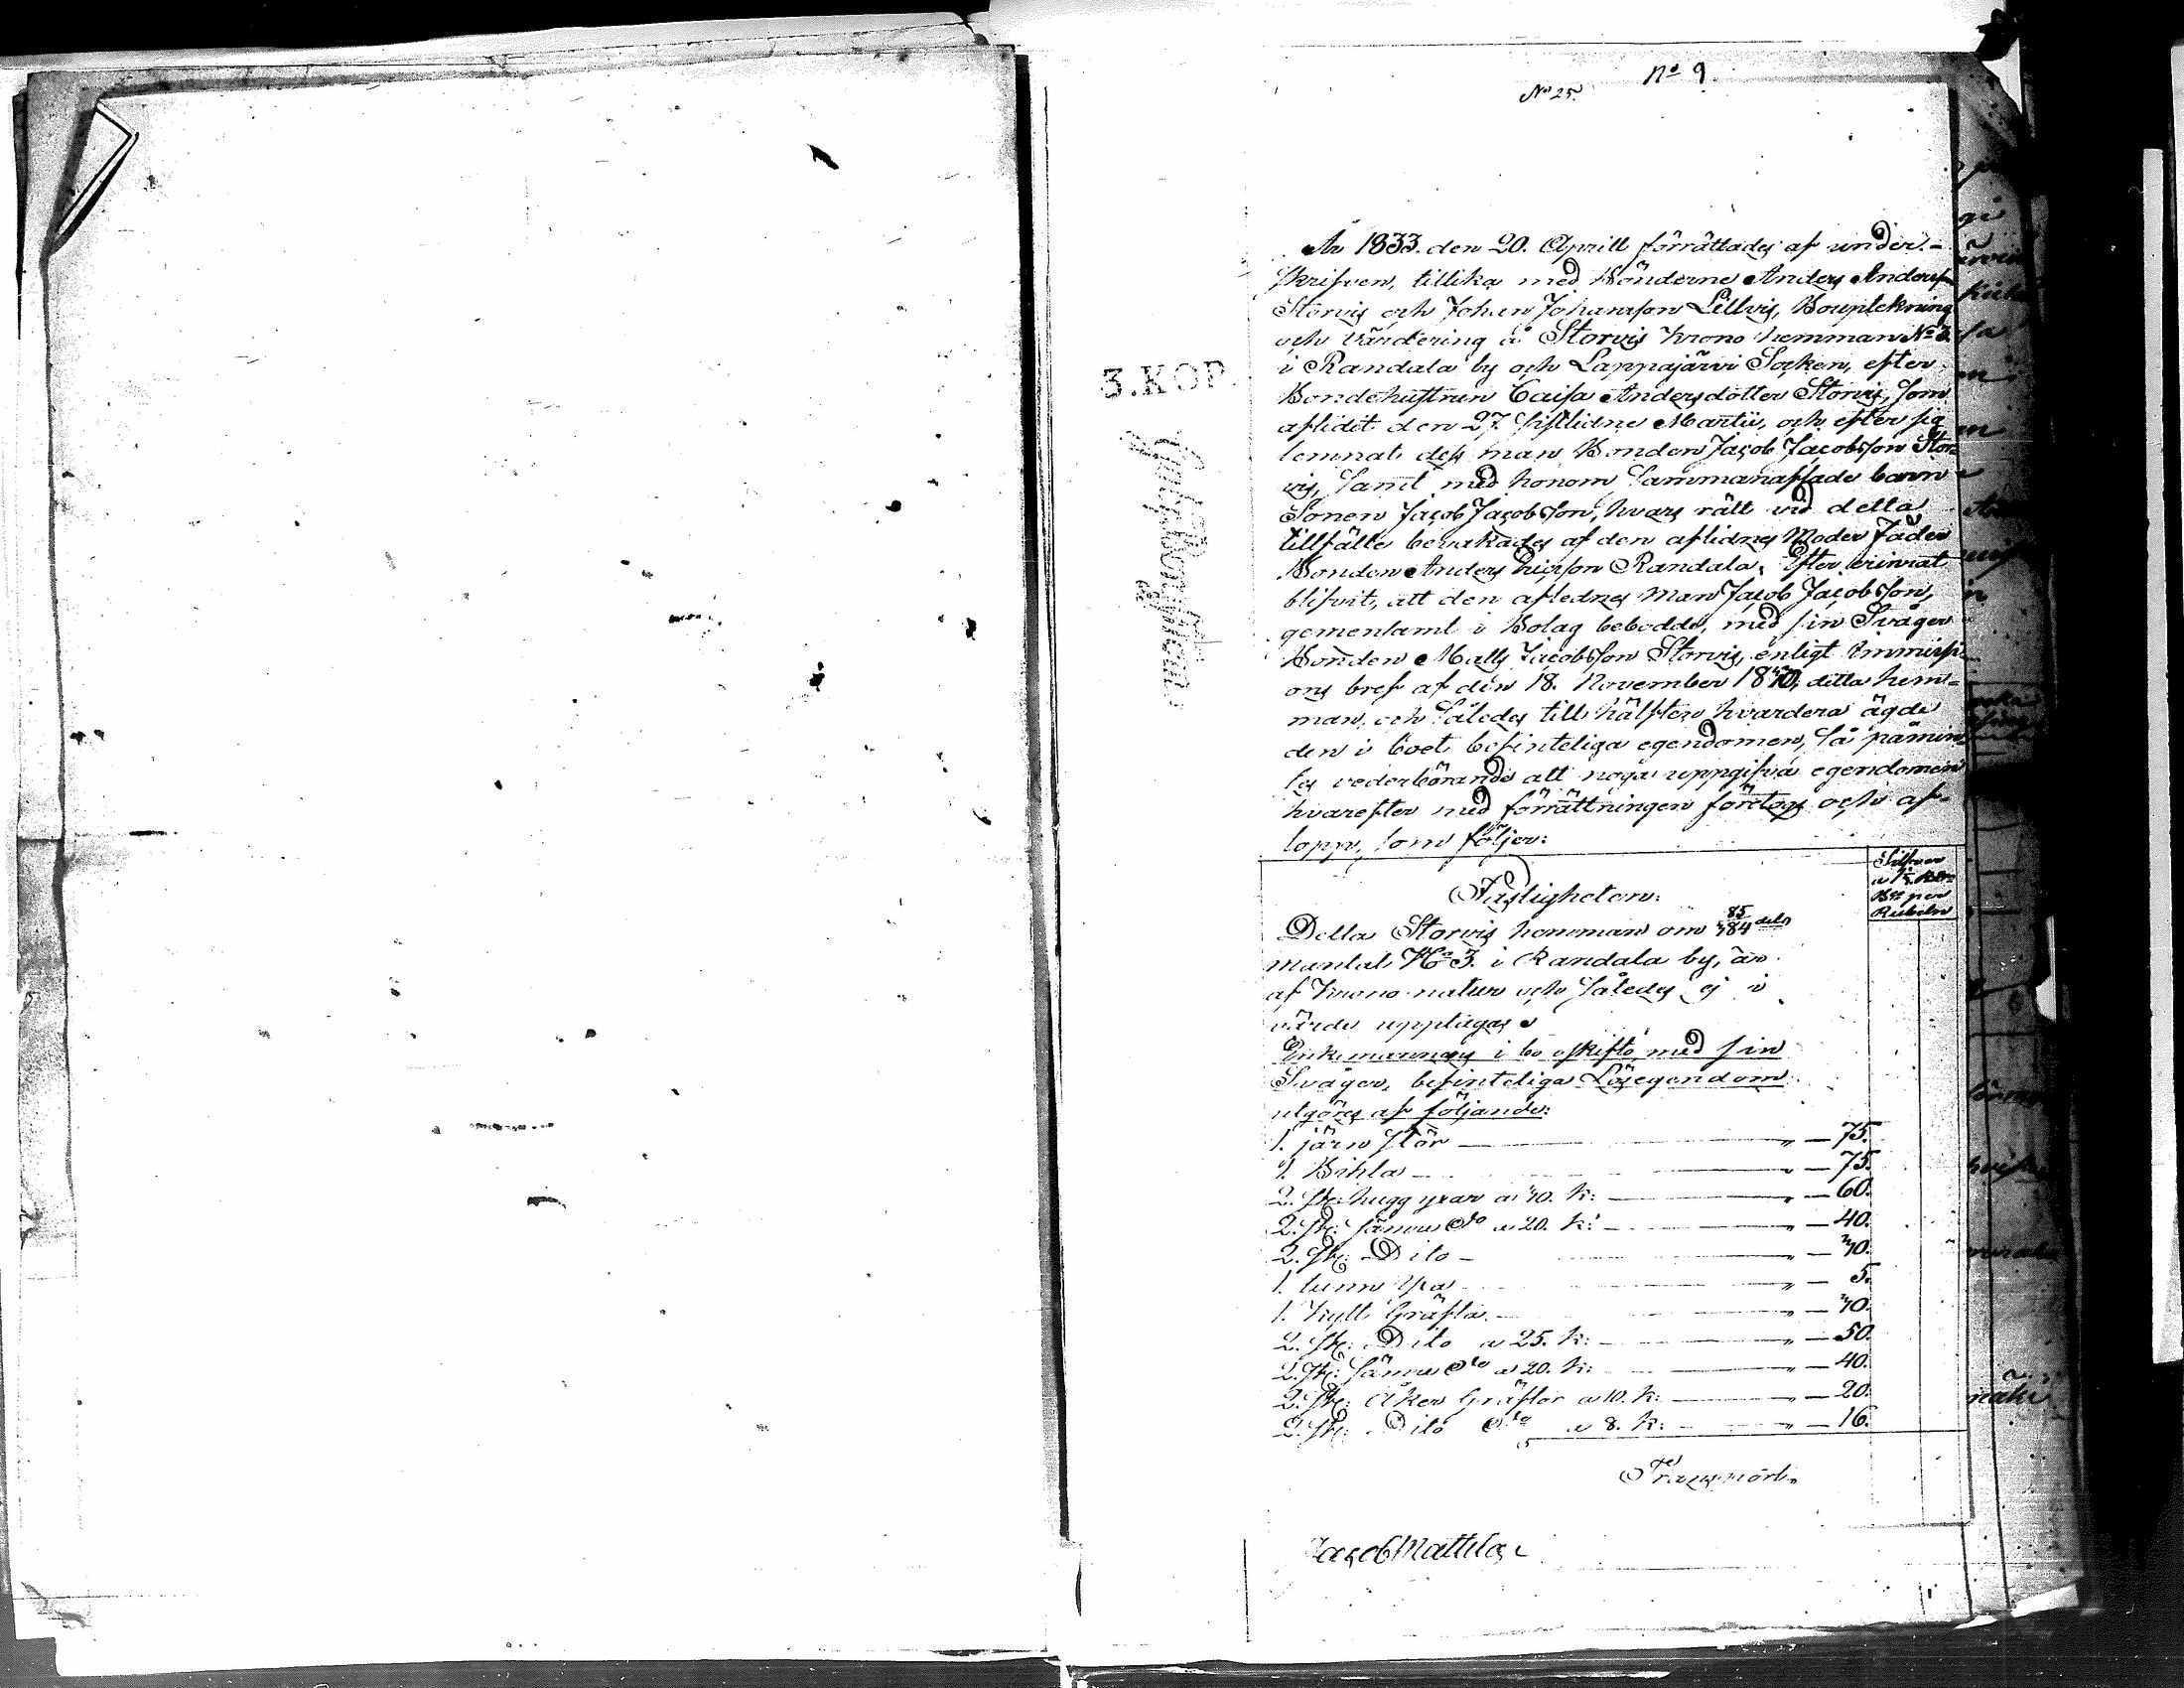 No 9.
No 25.
3. KOP.
År 1833. den 20. Aprill förrättades af under-
skrifven, tillika med Bönderne Anders Andersson
Storvis och Johan Johansson Lillvis, Bouptekning
och värdering å Storvis Krono hemman No 3.
i Randala by och Lappajärvi Socken, efter
Bondehustrun Caisa Andersdotter Storvis, som
aflidit den 27. sistlidne Martii, och efter sig
lemnat dess man Bonden Jacob Jacobsson Stor-
vis, samt med honom sammanaflade barn
Sonen Jacob Jacobsson, hvars rätt vid detta
tillfälle bevakades af den aflidnes Moder Fader
Bonden Anders Ericsson Randala. Efter erinrat
blifvit, att den aflednes man Jacob Jacobsson,
gemensamt i Bolag bebodde, med sin Svåger
Bonden Matts Jacobsson Storvis, enligt Immissi-
ons bref af den 18. November 1840, detta hem-
man, och således till hälften hvardera ägde
den i boet befinteliga egendomen, så påmin-
tes vederbörande att noga uppgifva egendomen
hvarefter med förrättningen företogs och af-
lopp, som följer:
Silfver
Rubeln
Fastigheten.
Detta Storvis hemman om 85/384 dels
mantal No 3. i Randala by, är
af Krono natur och således ej i
värde upptages
Enkemannens i bo oskifto med sin
Svåger, befinteliga Lösegendom
utgöres af följande:
1. järn stör — " — 75.
1. Bihla — " — 75.
2. st: hugg yxar a 40. k: — " — 60.
2. st: sämre do a 20. k: — " — 40.
2. st: Dito — " — 40.
1. tunn Yxa — " — 5.
1. Kytt Gräfta — " — 40.
2. st: Dito a 25. k: — " — 50.
2. st: sämre do a 20. k: — " — 40.
2. st: Åker Gräftor a 10. k: — " — 20.
2. st: Dito do a 8. k: — " — 16.
Transport.
Jacob Mattila